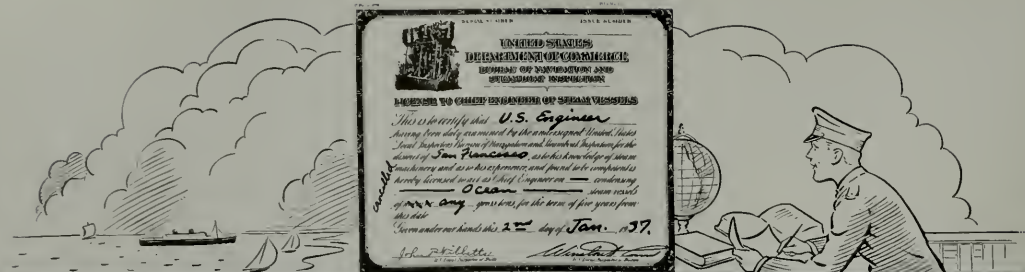 SERIAL NUMBER ISSUE NUMBER
UNITED STATES
DEPARTMENT OF COMMERCE
BUREAU OF NAVIGATION AND
STEAMBOAT INSPECTION
LICENSE TO CHIEF ENGINEER OF STEAM VESSELS
This is to certify that U.S. Engineer
having been duly examined by the undersigned United States
Local Inspectors Bureau of Navigation and Steamboat Inspection, for the
district of San Francisco, as to his knowledge of steam
machinery and as to his experience, and found to be competent is
hereby licensed to act as Chief Engineer on — condensing
Ocean steam vessels
of xxx any gross tons, for the term of five years from
this date
Given under our hands this 2nd day of Jan. 1937.
cancelled